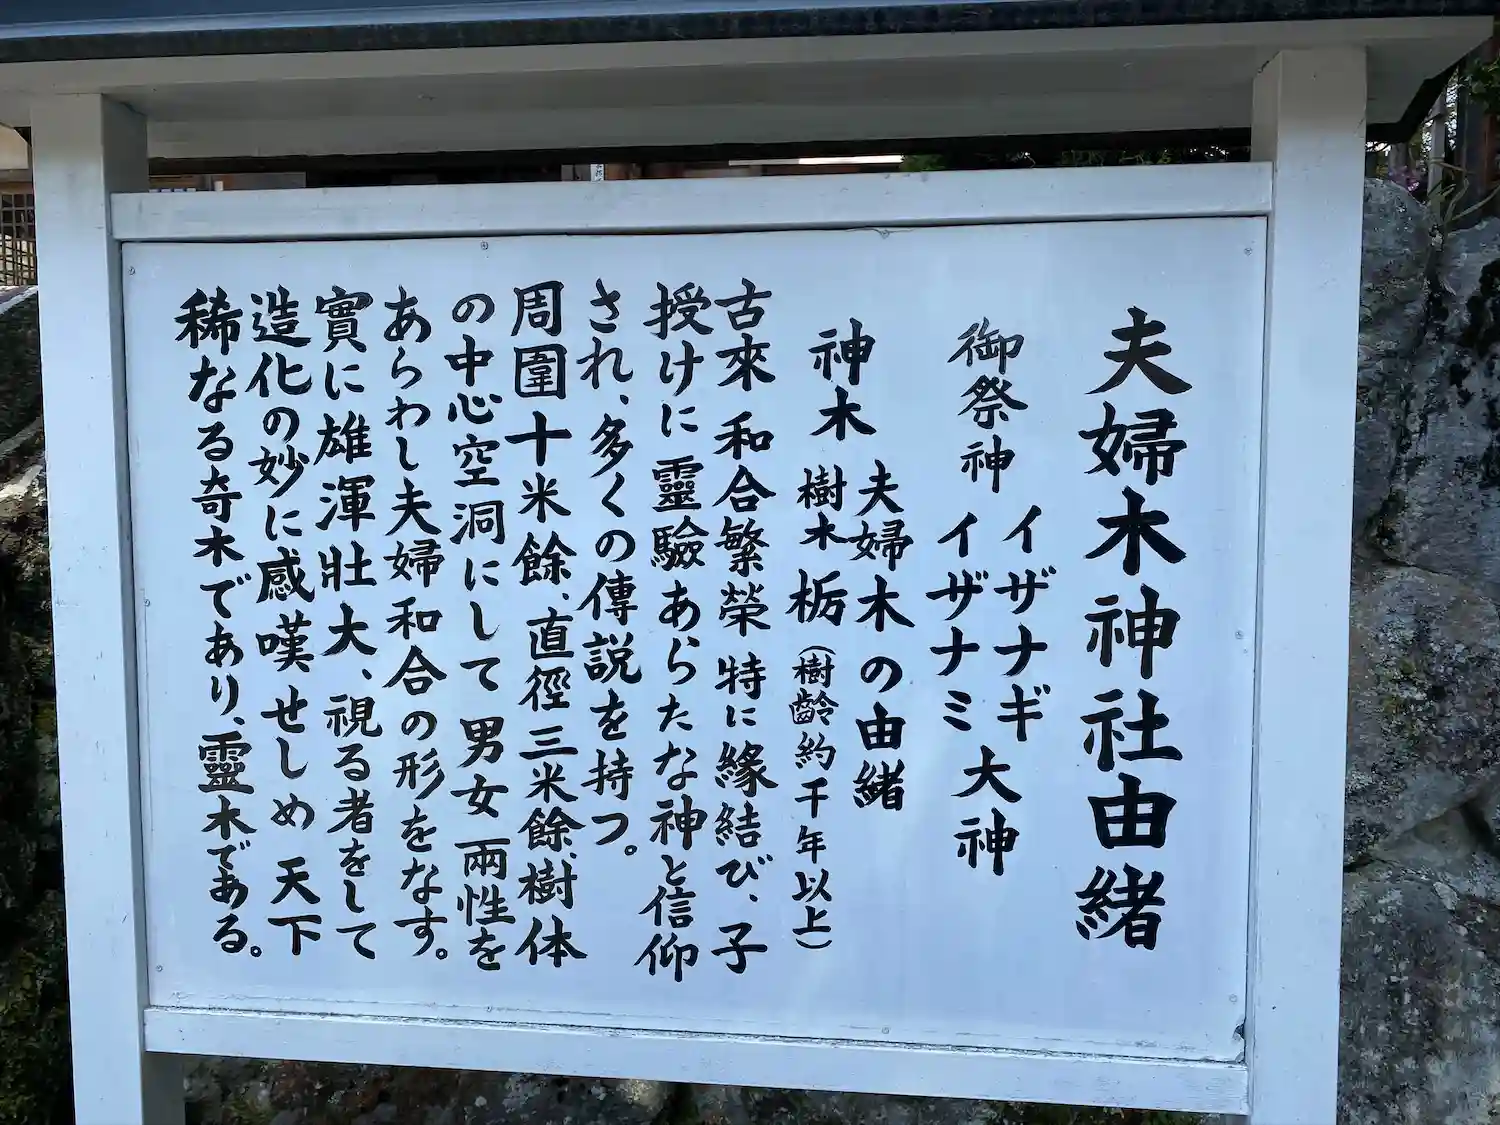 夫婦木神社由緒
御祭神
イザナギ
イザナミ
大神
神木
夫婦木の由緒
樹木栃(樹齢約千年以上)
古來和合繁榮特に縁結び、子
授けに靈驗あらたな神と信仰
され、多くの傳説を持つ。
周圍十米餘、直徑三米餘、樹体
の中心空洞にして男女兩性を
あらわし夫婦和合の形をなす。
實に雄渾壯大、視る者をして
造化の妙に感嘆せしめ天下
稀なる奇木であり、靈木である。